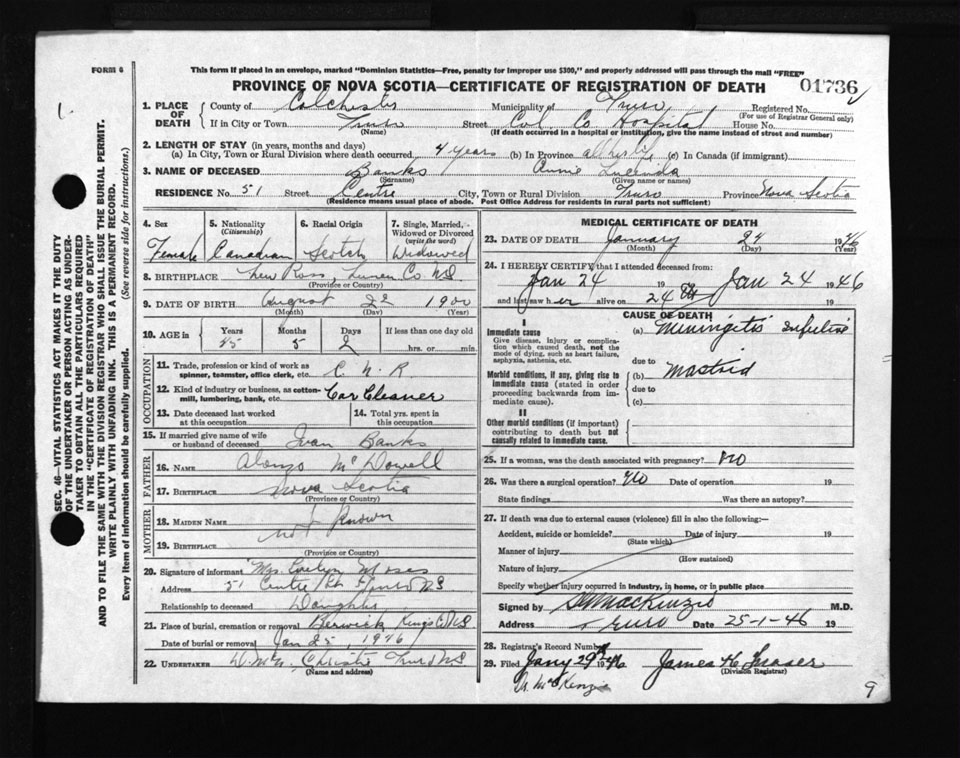 FORM 6
This form if placed in an envelope, marked "Dominion Statistics—Free, penalty for improper use $300," and properly addressed will pass through the mail "FREE"
PROVINCE OF NOVA SCOTIA—CERTIFICATE OF REGISTRATION OF DEATH
01736
1.
SEC. 46—VITAL STATISTICS ACT MAKES IT THE DUTY
OF THE UNDERTAKER OR PERSON ACTING AS UNDER-
TAKER TO OBTAIN ALL THE PARTICULARS REQUIRED
IN THE "CERTIFICATE OF REGISTRATION OF DEATH"
AND TO FILE THE SAME WITH THE DIVISION REGISTRAR WHO SHALL ISSUE THE BURIAL PERMIT.
WRITE PLAINLY WITH UNFADING INK. THIS IS A PERMANENT RECORD.
Every item of information should be carefully supplied. (See reverse side for instructions.)
1. PLACE OF DEATH
County of Colchester Municipality of Truro Registered No.
(For use of Registrar General only)
If in City or Town Truro Street Col. Co Hospital House No.
(Name) (If death occurred in a hospital or institution, give the name instead of street and number)
2. LENGTH OF STAY (in years, months and days)
(a) In City, Town or Rural Division where death occurred 4 years (b) In Province all her life (c) In Canada (if immigrant)
3. NAME OF DECEASED Banks Annie Lucinda
(Surname) (Given name or names)
RESIDENCE No. 51 Street Centre City, Town or Rural Division Truro Province Nova Scotia
(Residence means usual place of abode. Post Office Address for residents in rural parts not sufficient)
4. Sex
Female
5. Nationality
(Citizenship)
Canadian
6. Racial Origin
Scotch
7. Single, Married,
Widowed or Divorced
(write the word)
Widowed
8. BIRTHPLACE New Ross Lunen Co. NS
(Province or Country)
9. DATE OF BIRTH August 22 1900
(Month) (Day) (Year)
10. AGE in
Years Months Days If less than one day old
45 5 2 hrs. or min.
OCCUPATION
11. Trade, profession or kind of work as
spinner, teamster, office clerk, etc. C. N. R
12. Kind of industry or business, as cotton-
mill, lumbering, bank, etc. Car Cleaner
13. Date deceased last worked
at this occupation
14. Total yrs. spent in
this occupation
15. If married give name of wife
or husband of deceased Ivan Banks
FATHER
16. NAME Alonzo McDowell
17. BIRTHPLACE Nova Scotia
(Province or Country)
MOTHER
18. MAIDEN NAME
not Known
19. BIRTHPLACE
(Province or Country)
20. Signature of informant Mrs. Evelyn Moses
Address 51 Centre St Truro NS
Relationship to deceased Daughter
21. Place of burial, cremation or removal Berwick Kings Co NS
Date of burial or removal Jan 25, 1946
22. UNDERTAKER Christie Truro NS
(Name and address)
MEDICAL CERTIFICATE OF DEATH
23. DATE OF DEATH January 24 1946
(Month) (Day) (Year)
24. I HEREBY CERTIFY that I attended deceased from:
Jan 24 19 Jan 24 1946
and last saw her alive on 24th 19
CAUSE OF DEATH
I
Immediate cause
Give disease, injury or complica-
tion which caused death, not the
mode of dying, such as heart failure,
asphyxia, asthenia, etc.
(a) Meningitis
due to
Morbid conditions, if any, giving rise to
immediate cause (stated in order
proceeding backwards from im-
mediate cause).
(b) Mastoid
due to
(c)
II
Other morbid conditions (if important)
contributing to death but not
causally related to immediate cause.
25. If a woman, was the death associated with pregnancy? No
26. Was there a surgical operation? No Date of operation 19
State findings Was there an autopsy?
27. If death was due to external causes (violence) fill in also the following:—
Accident, suicide or homicide? Date of injury 19
(State which)
Manner of injury
(How sustained)
Nature of injury
Specify whether injury occurred in industry, in home, or in public place
Signed by MacKenzie M.D.
Address Truro Date 25-1-46 19
28. Registrar's Record Number
29. Filed Jany 29th 1946 James H. Fraser
(Division Registrar)
Dr. McKenzie
9